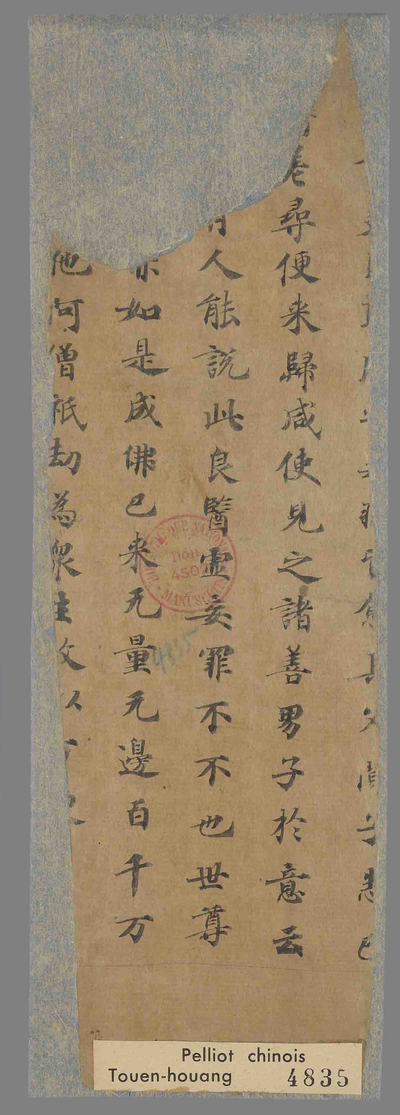 愈其父聞子悉已
差尋便来歸咸使見之諸善男子於意云
有人能說此良醫虛妄罪不不也世尊
亦如是成佛已来无量无邊百千万
他阿僧祇劫為衆生故以
4835
Pelliot chinois
Touen-houang 4835